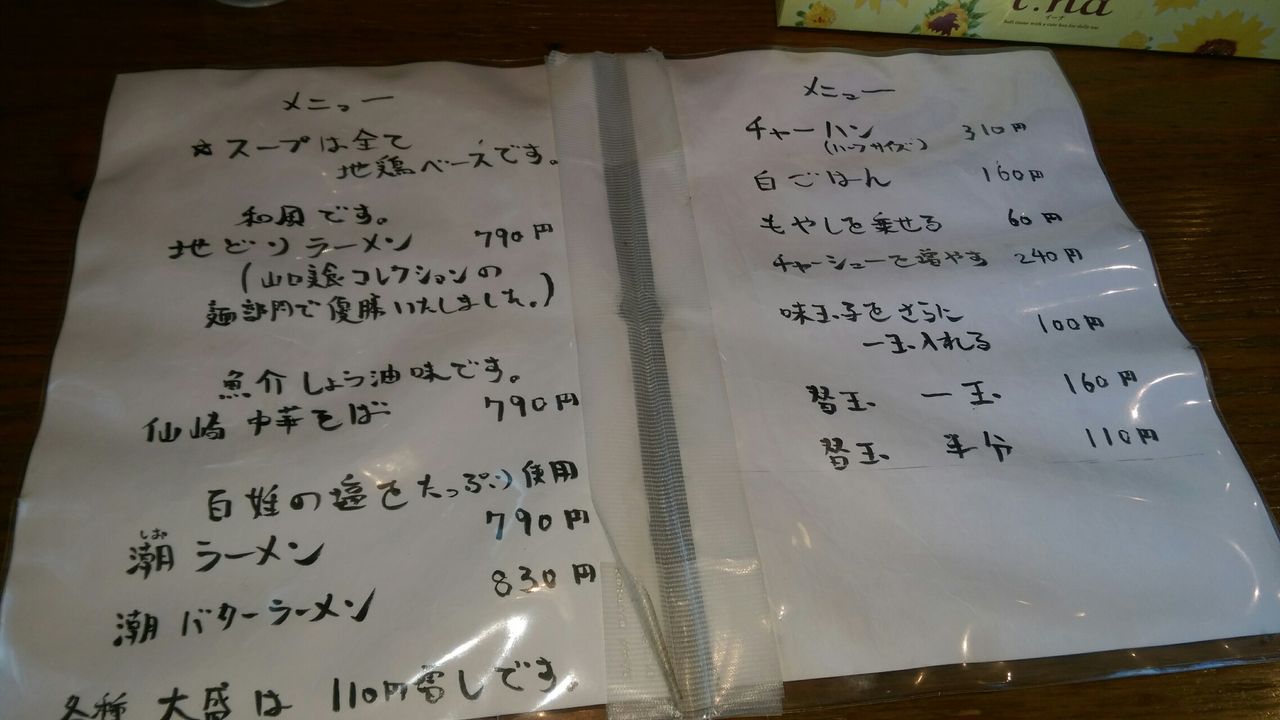 i:na
イーナ
Soft tissue with a cute box for daily use
メニュー
☆スープは全て
地鶏ベースです。
和風です。
地どりラーメン 790円
(山口美食コレクションの
麺部門で優勝いたしました。)
魚介しょう油味です。
仙崎中華そば 790円
百姓の塩をたっぷり使用
しお
潮ラーメン 790円
潮バターラーメン 830円
各種大盛は110円増しです。
メニュー
チャーハン 310円
(ハーフサイズ)
白ごはん 160円
もやしを乗せる 60円
チャーシューを増やす 240円
味玉子をさらに
一玉入れる 100円
替玉 一玉 160円
替玉 半分 110円